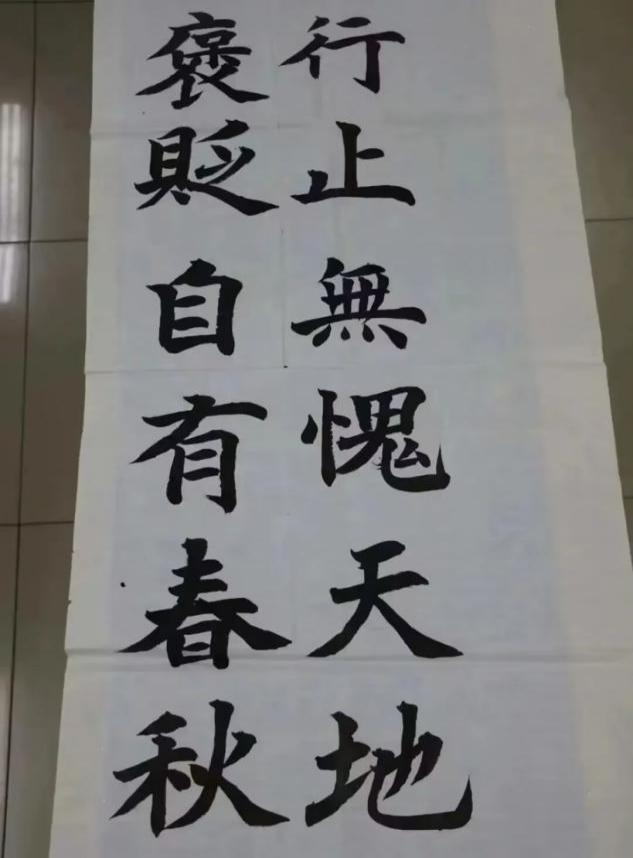 行止無愧天地
褒貶自有春秋